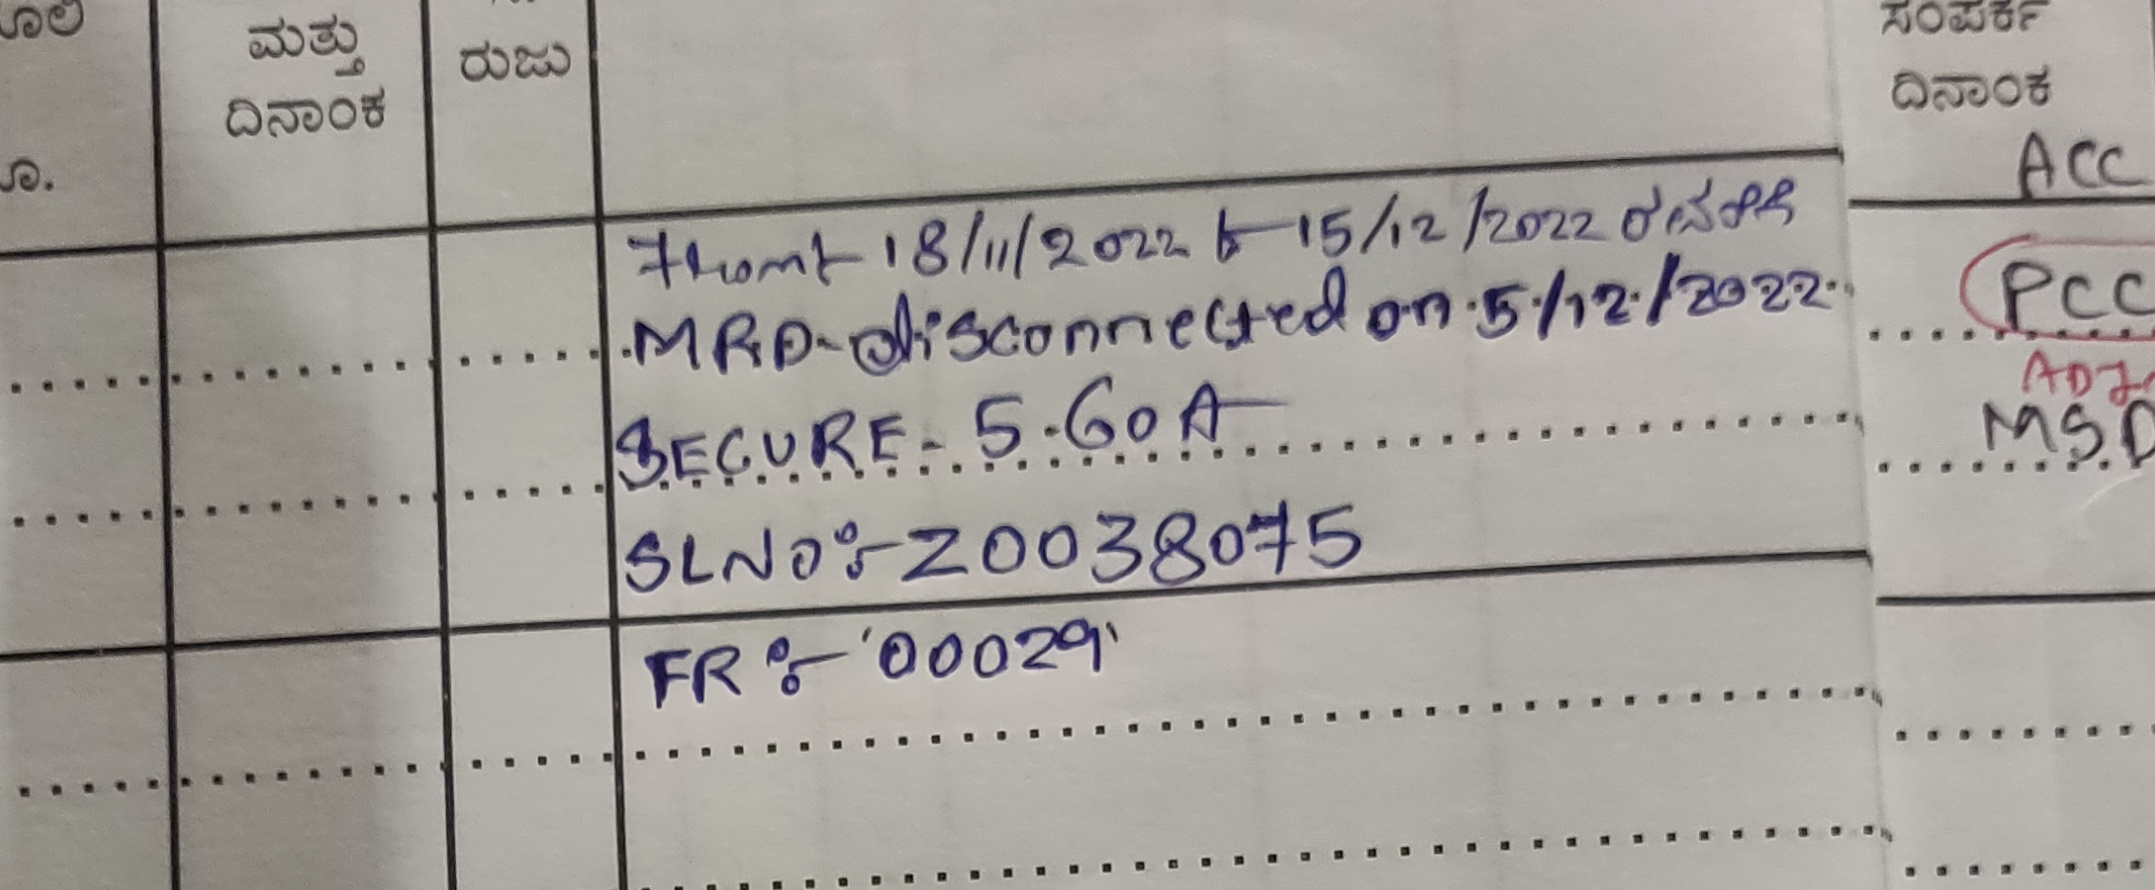 ಮತ್ತು
ದಿನಾಂಕ
ರುಜು
ಸಂಪರ್ಕ
ದಿನಾಂಕ
ACC
from 18/11/2022 to 15/12/2022
MRD-disconnected on 5/12/2022
SECURE - 5-60A
SLNO:- Z0038075
FR:- '00029'
PCC
ADJ
MSD